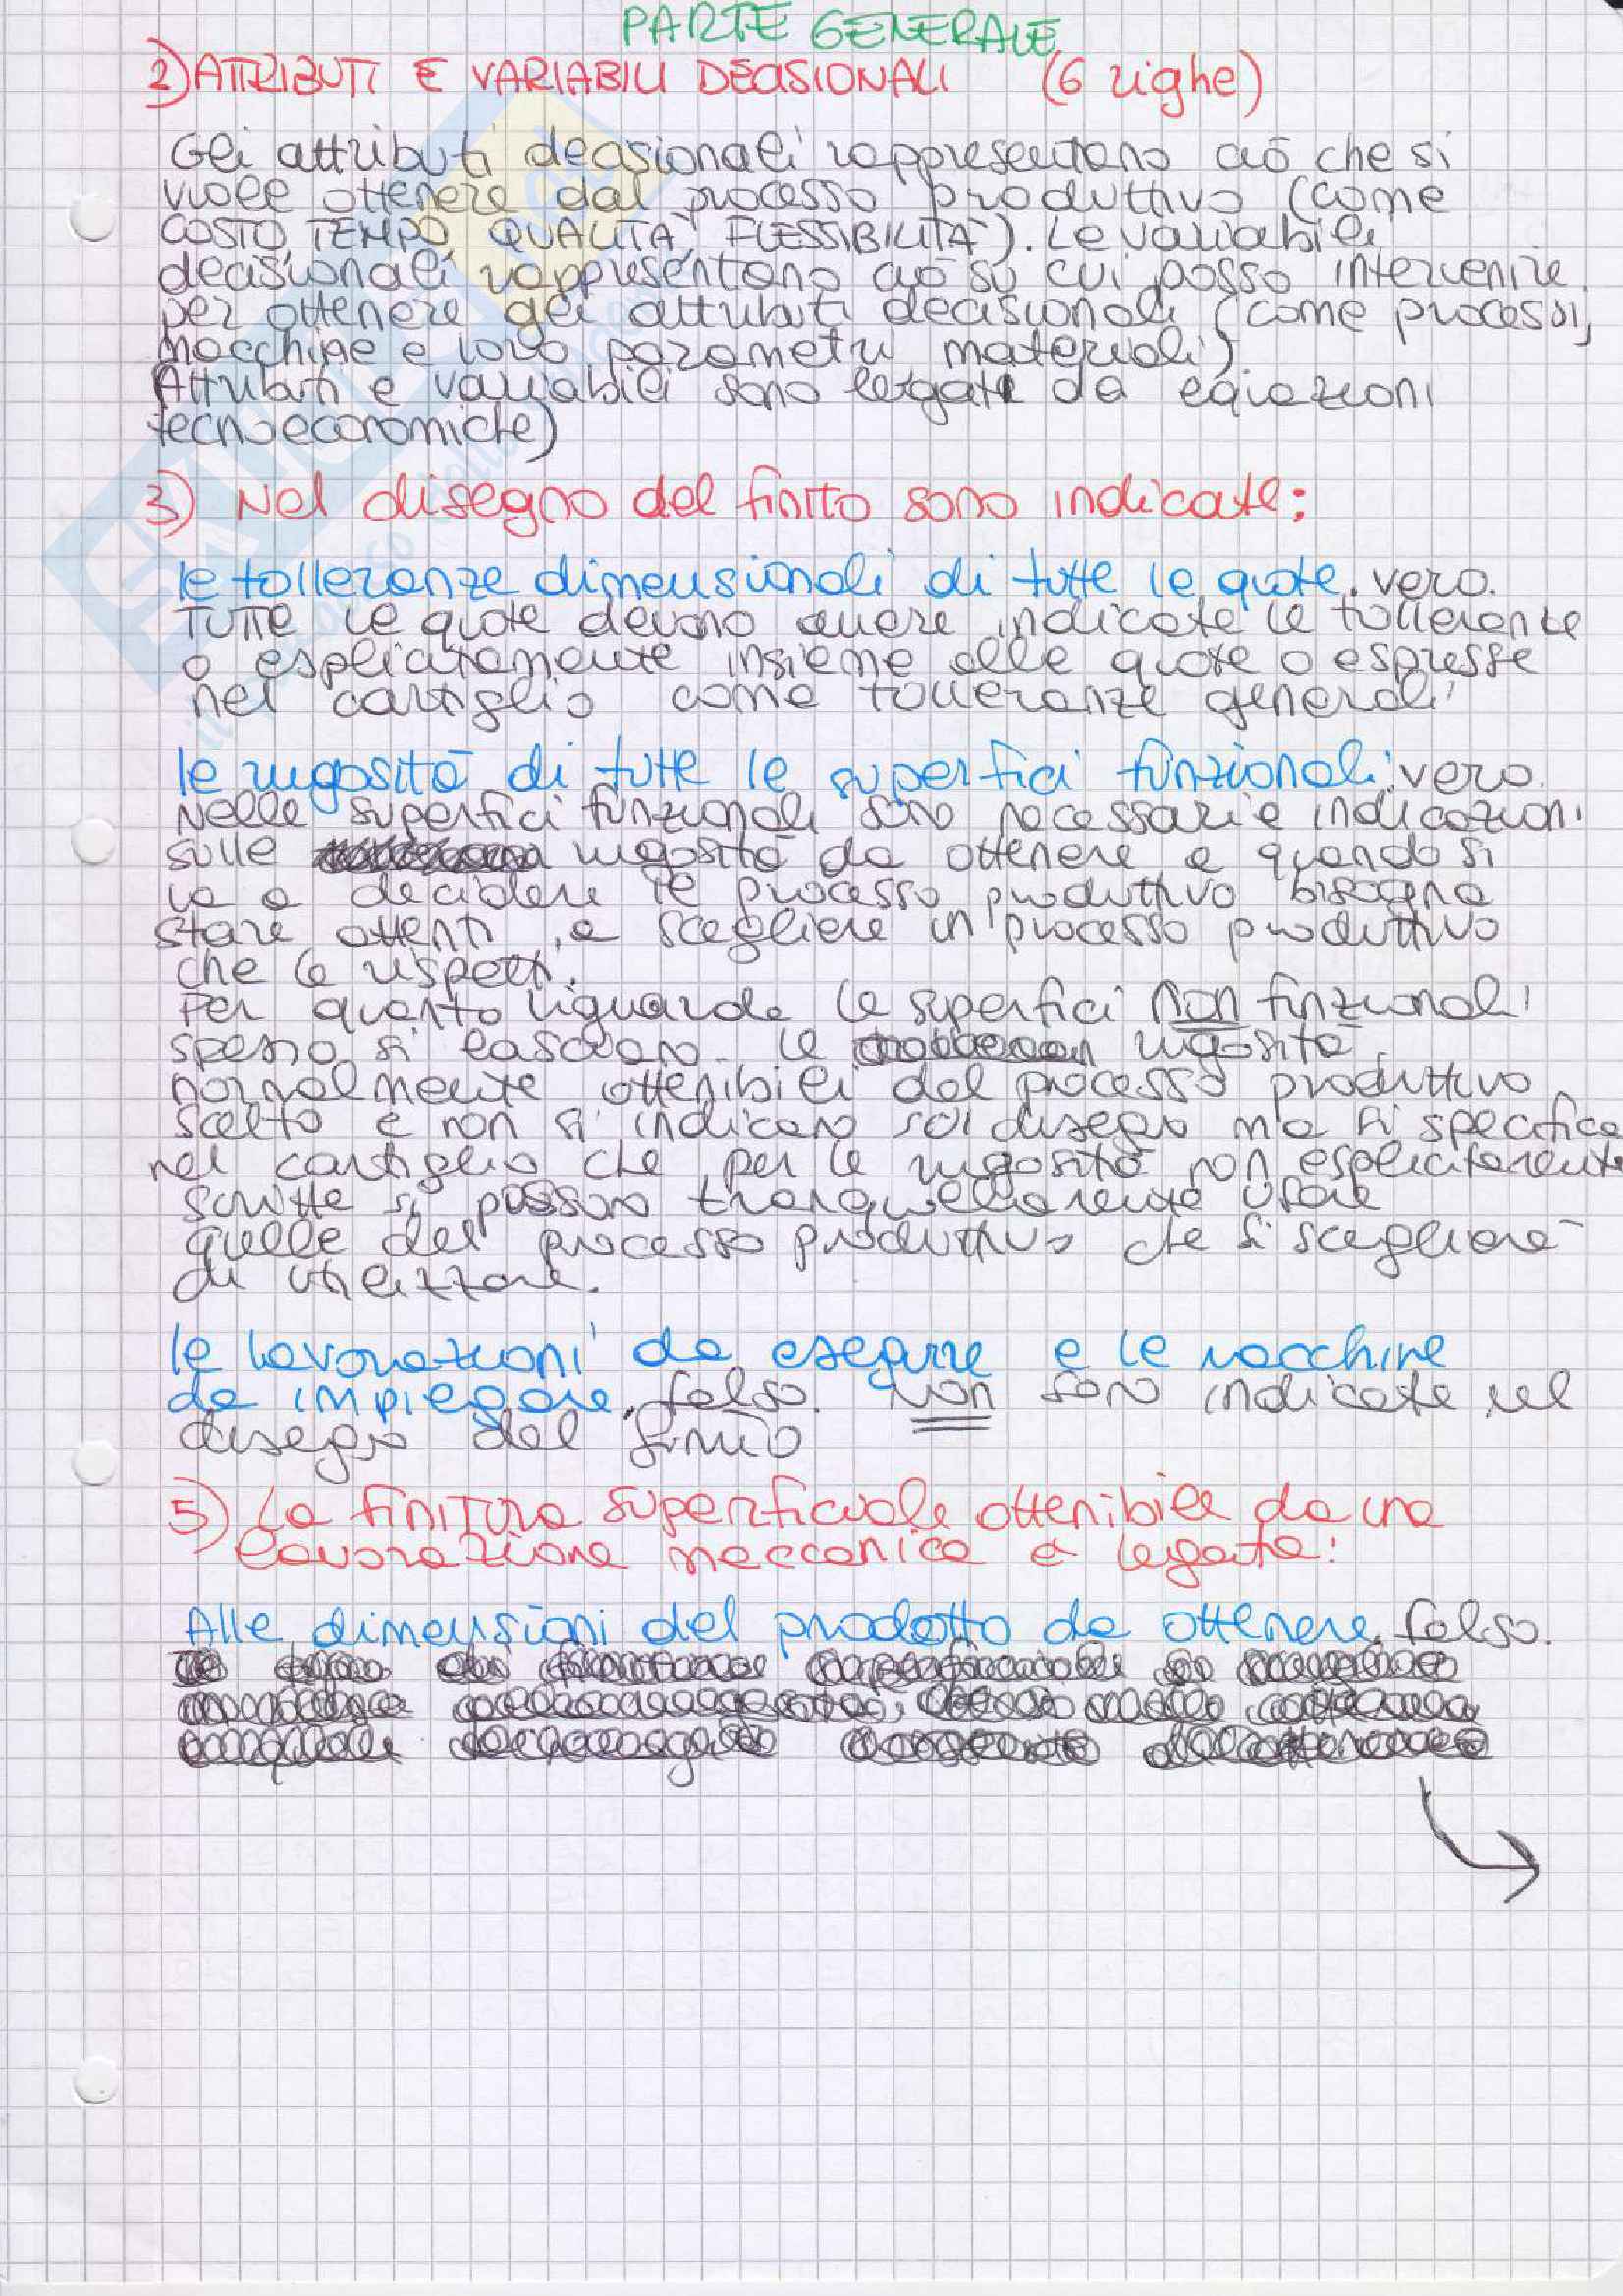 PARTE GENERALE
2) ATTRIBUTI E VARIABILI DECISIONALI (6 righe)
Gli attributi decisionali rappresentano ciò che si
vuole ottenere dal processo produttivo (come
COSTO, TEMPO, QUALITÀ, FLESSIBILITÀ). Le variabili
decisionali rappresentano ciò su cui posso intervenire
per ottenere gli attributi decisionali (come processi,
macchine e loro parametri, materiali)
Attributi e variabili sono legati da eqiazioni
tecnoeconomiche)
3) Nel disegno del finito sono indicate:
le tolleranze dimensionali di tutte le quote. vero.
TUTTE le quote devono avere indicate le tolleranze
o esplicitamente insieme alle quote o espresse
nel cartiglio come tolleranze generali
le rugosità di tutte le superfici funzionali: vero.
Nelle superfici funzionali sono necessarie indicazioni
sulle rugosità da ottenere e quando si
va a decidere il processo produttivo bisogna
stare attenti a scegliere un processo produttivo
che le rispetti.
Per quanto riguarda le superfici non funzionali
spesso si lasciano le rugosità
normalmente ottenibili dal processo produttivo
scelto e non si indicano sul disegno ma si specifica
nel cartiglio che per le rugosità non esplicitamente
scritte si possono tranquillamente usare
quelle del processo produttivo che si sceglierà
di utilizzare.
le lavorazioni da eseguire e le macchine
da impiegare. falso. Non sono indicate nel
disegno del finito
5) La finitura superficiale ottenibile da una
lavorazione meccanica è legata:
Alle dimensioni del prodotto da ottenere. falso.